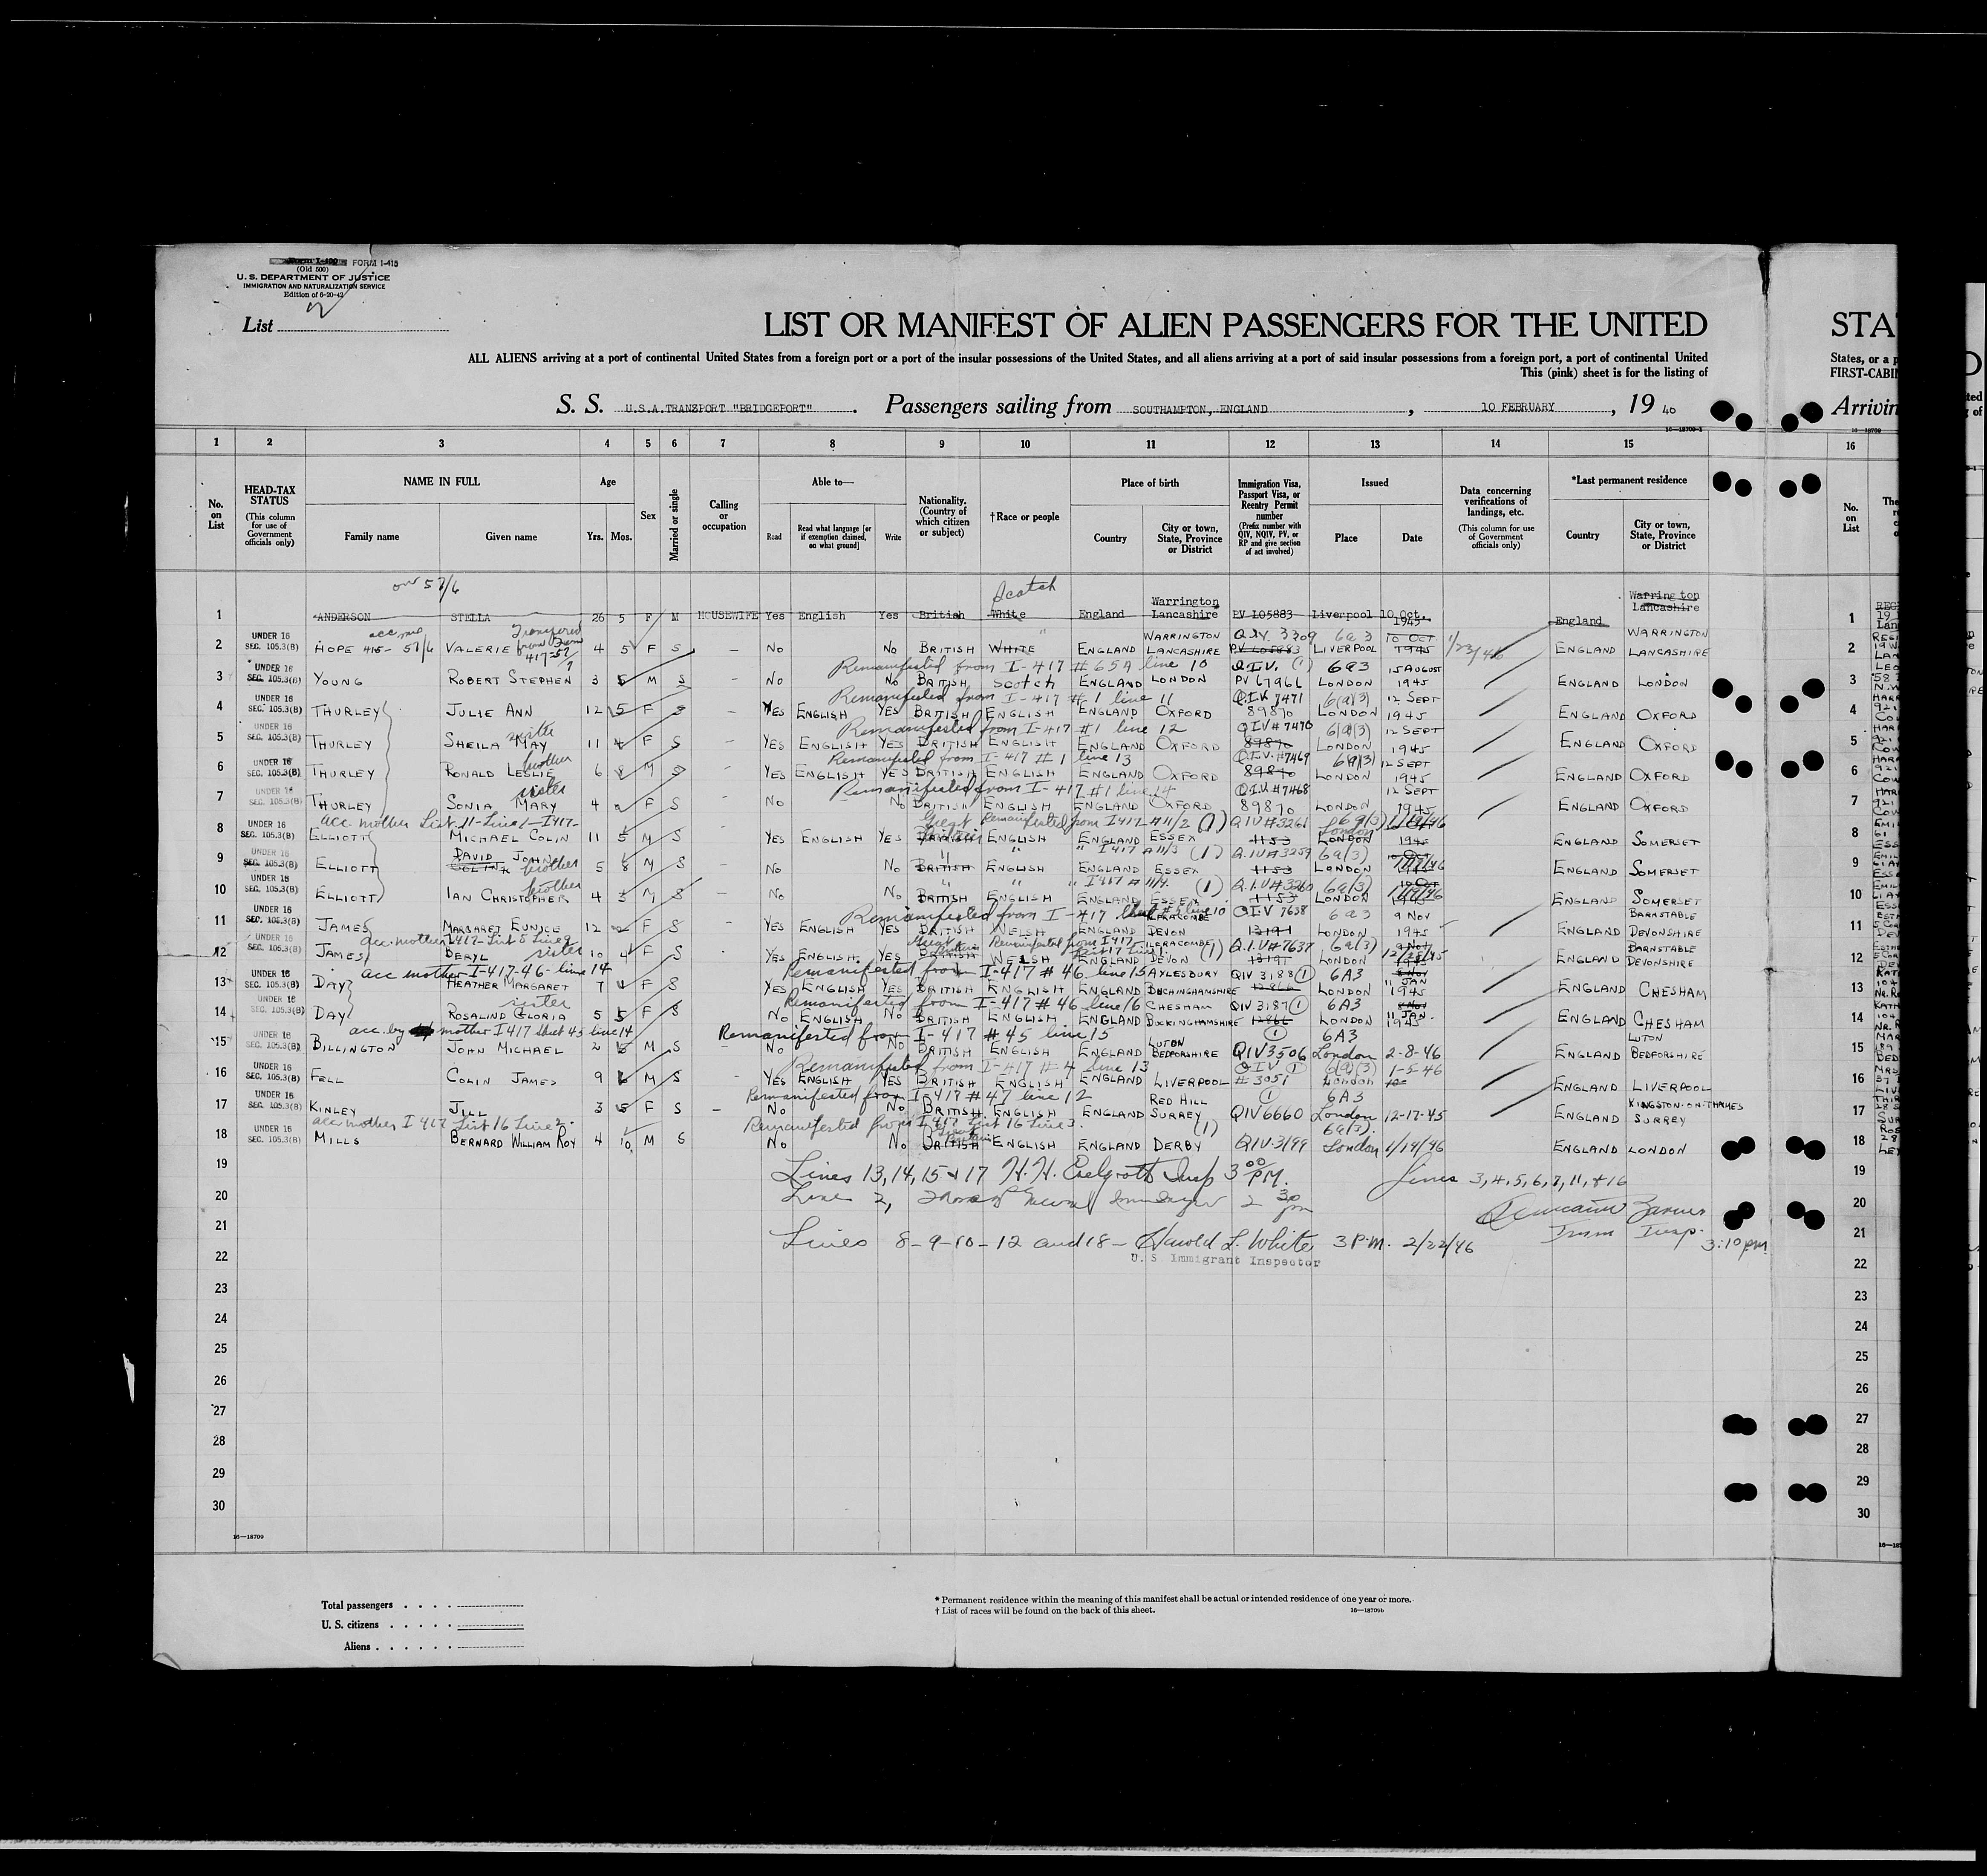 FORM I-415
(Old 500)
U. S. DEPARTMENT OF JUSTICE
IMMIGRATION AND NATURALIZATION SERVICE
Edition of 6-20-42
List
LIST OR MANIFEST OF ALIEN PASSENGERS FOR THE UNITED
STA
ALL ALIENS arriving at a port of continental United States from a foreign port or a port of the insular possessions of the United States, and all aliens arriving at a port of said insular possessions from a foreign port, a port of continental United
States, or a p
This (pink) sheet is for the listing of
FIRST-CABI
S. S. U.S.A.TRANSPORT "BRIDGEPORT". Passengers sailing from SOUTHAMPTON, ENGLAND, 10 FEBRUARY, 19
Arrivin
1 2 3 4 5 6 7 8 9 10 11 12 13 14 15 16
No. on List
HEAD-TAX STATUS (This column for use of Government officials only)
NAME IN FULL
Family name
Given name
Age
Yrs. Mos.
Sex
Married or single
Calling or occupation
Able to—
Read
Read what language [or if exemption claimed, on what ground]
Write
Nationality. (Country of which citizen or subject)
†Race or people
Place of birth
Country
City or town, State, Province or District
Immigration Visa, Passport Visa, or Reentry Permit number (Prefix number with QIV, NQIV, PV, or RP and give section of act involved)
Issued
Place
Date
Data concerning verifications of landings, etc. (This column for use of Government officials only)
*Last permanent residence
Country
City or town, State, Province or District
No. on List
on 57/6
Scotch
1 ANDERSON STELLA 26 5 F M HOUSEWIFE Yes English Yes British White England Warrington Lancashire PV L05883 Liverpool 10 Oct. 1945. England Warrington Lancashire
2 UNDER 16 SEC. 105.3(B) HOPE VALERIE 4 5 F S – No No BRITISH WHITE ENGLAND WARRINGTON LANCASHIRE QIV. 3309 6a3 LIVERPOOL 10 OCT 1945 1/23/46 ENGLAND WARRINGTON LANCASHIRE
Remanifested from I-417 #65A line 10
3 UNDER 16 SEC. 105.3(B) YOUNG ROBERT STEPHEN 3 5 M S – No No BRITISH Scotch ENGLAND LONDON QIV. (1) PV 67966 6a3 LONDON 15 AUGUST 1945 ENGLAND LONDON
Remanifested from I-417 #1 line 11
4 UNDER 16 SEC. 105.3(B) THURLEY JULIE ANN 12 5 F S – YES ENGLISH YES BRITISH ENGLISH ENGLAND OXFORD QIV 7471 89870 6(a)(3) LONDON 12 SEPT 1945 ENGLAND OXFORD
sister Remanifested from I-417 #1 line 12
5 UNDER 16 SEC. 105.3(B) THURLEY SHEILA MAY 11 4 F S – YES ENGLISH YES BRITISH ENGLISH ENGLAND OXFORD QIV#7470 89870 6(a)(3) LONDON 12 SEPT 1945 ENGLAND OXFORD
brother Remanifested from I-417 #1 line 13
6 UNDER 16 SEC. 105.3(B) THURLEY RONALD LESLIE 6 8 M S – YES ENGLISH YES BRITISH ENGLISH ENGLAND OXFORD QIV.#7469 89870 6(a)(3) LONDON 12 SEPT 1945 ENGLAND OXFORD
sister Remanifested from I-417 #1 line 14
7 UNDER 16 SEC. 105.3(B) THURLEY SONIA MARY 4 F S – No No BRITISH ENGLISH ENGLAND OXFORD QIV#7468 89870 LONDON 12 SEPT 1945 ENGLAND OXFORD
acc. mother List 11-Line 1-I417- Remanifested from I417 #11/2 (1)
8 UNDER 16 SEC. 105.3(B) ELLIOTT MICHAEL COLIN 11 5 M S YES ENGLISH YES BRITISH ENGLISH ENGLAND ESSEX QIV#3261 1153 London 1945 ENGLAND SOMERSET
I417 #11/3 (1)
9 UNDER 16 SEC. 105.3(B) ELLIOTT DAVID JOHN brother 5 8 M S No No BRITISH ENGLISH ENGLAND ESSEX Q.IV#3259 1153 6a(3) LONDON 1/17/46 ENGLAND SOMERSET
I417 #11/4. (1)
10 UNDER 16 SEC. 105.3(B) ELLIOTT IAN CHRISTOPHER brother 4 3 M S No No BRITISH ENGLISH ENGLAND ESSEX Q.IV#3260 1153 6a(3) LONDON 1/17/46 ENGLAND SOMERSET
Remanifested from I-417 line 10
11 UNDER 16 SEC. 105.3(B) JAMES MARGARET EUNICE 12 F S YES ENGLISH YES BRITISH WELSH ENGLAND ILFRACOMBE DEVON QIV 7638 13191 6a3 LONDON 9 NOV 1945 ENGLAND BARNSTABLE DEVONSHIRE
acc. mother I417-List 5 Line 9 Remanifested from I417
12 UNDER 16 SEC. 105.3(B) JAMES BERYL sister 10 4 F S YES ENGLISH. YES BRITISH WELSH ENGLAND ILFRACOMBE DEVON (1) Q.IV#7637 13191 6a(3) LONDON 9 NOV ENGLAND BARNSTABLE DEVONSHIRE
acc mother I-417-46-line 14 Remanifested from I-417 #46 line 15
13 UNDER 16 SEC. 105.3(B) DAY HEATHER MARGARET 7 4 F S YES ENGLISH YES BRITISH ENGLISH ENGLAND AYLESBURY BUCKINGHAMSHIRE QIV 3188 (1) 12866 6A3 LONDON 11 JAN 1945 ENGLAND CHESHAM
sister Remanifested from I-417 #46 line 16
14 UNDER 16 SEC. 105.3(B) DAY ROSALIND GLORIA 5 5 F S No ENGLISH No BRITISH ENGLISH ENGLAND CHESHAM BUCKINGHAMSHIRE QIV 3187 (1) 12866 6A3 LONDON 8 NOV 11 JAN. 1945 ENGLAND CHESHAM
acc. by mother I417 sheet 45 line 14 Remanifested from I-417 #45 line 15
15 UNDER 16 SEC. 105.3(B) BILLINGTON JOHN MICHAEL 2 5 M S – No No BRITISH ENGLISH ENGLAND LUTON BEDFORSHIRE (1) QIV3506 6A3 London 2-8-46 ENGLAND LUTON BEDFORSHIRE
Remanifested from I-417 #4 line 13
16 UNDER 16 SEC. 105.3(B) FELL COLIN JAMES 9 M S – YES ENGLISH YES BRITISH ENGLISH ENGLAND LIVERPOOL QIV (1) #3051 6(a)(3) London 1-5-46 ENGLAND LIVERPOOL
Remanifested from I-417 #47 line 12
17 UNDER 16 SEC. 105.3(B) KINLEY JILL 3 5 F S – No No BRITISH. ENGLISH ENGLAND RED HILL SURREY (1) QIV6660 6A3 London 12-17-45 ENGLAND KINGSTON-ON-THAMES SURREY
acc mother I 417 List 16 Line 2. Remanifested from I 417 List 16 Line 3.
18 UNDER 16 SEC. 105.3(B) MILLS BERNARD WILLIAM ROY 4 10 M S No No BRITISH ENGLISH ENGLAND DERBY (1) QIV-3199 6a(3). London 1/19/46 ENGLAND LONDON
19 Lines 13,14,15+17 Insp 3 00 P.M. Lines 3,4,5,6,7,11,+16
20 Line 2, 2 30 pm
21 Lines 8-9-10-12 and 18- Harold L. White 3 P.M. 2/22/46 Imm Insp. 3:10 pm
U. S. Immigrant Inspector
22
23
24
25
26
27
28
29
30
16—18709
Total passengers
U. S. citizens
Aliens
* Permanent residence within the meaning of this manifest shall be actual or intended residence of one year or more.
† List of races will be found on the back of this sheet.
16—18709b